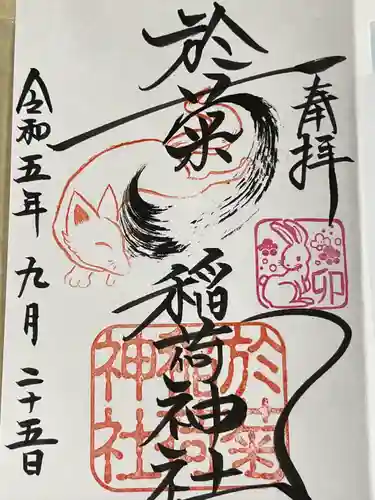 奉拝
卯
於菊
稲荷神社
於菊
稲荷
神社
令和五年九月二十五日